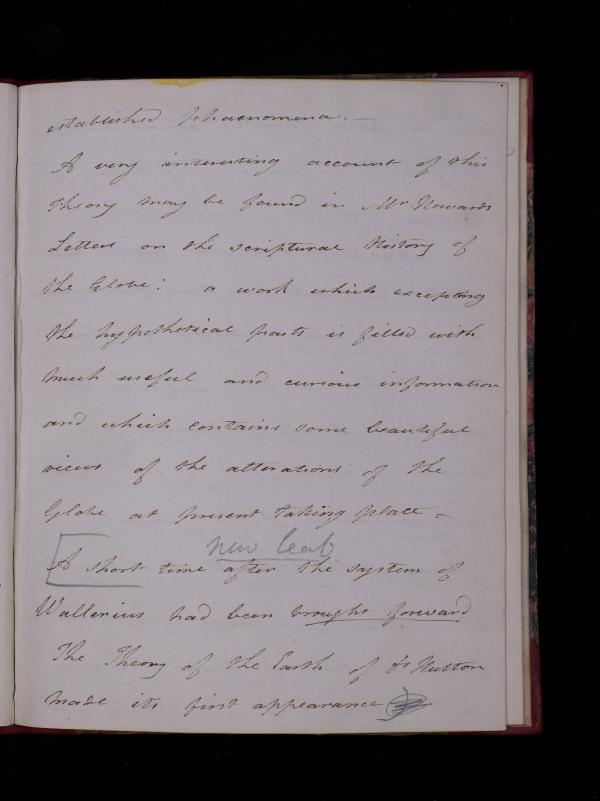 established Phaenomena. —
A very interesting account of this
Theory may be found in Mr Howards
Letters on the scriptural History of
the Globe: a work which excepting
the hypothetical parts is filled with
much useful and curious information
and which contains some beautiful
views of the alterations of the
Globe at present taking place –
new leaf
A short time after the system of
Wallerius had been brought forward
The Theory of the Earth of Dr Hutton
made its first appearance